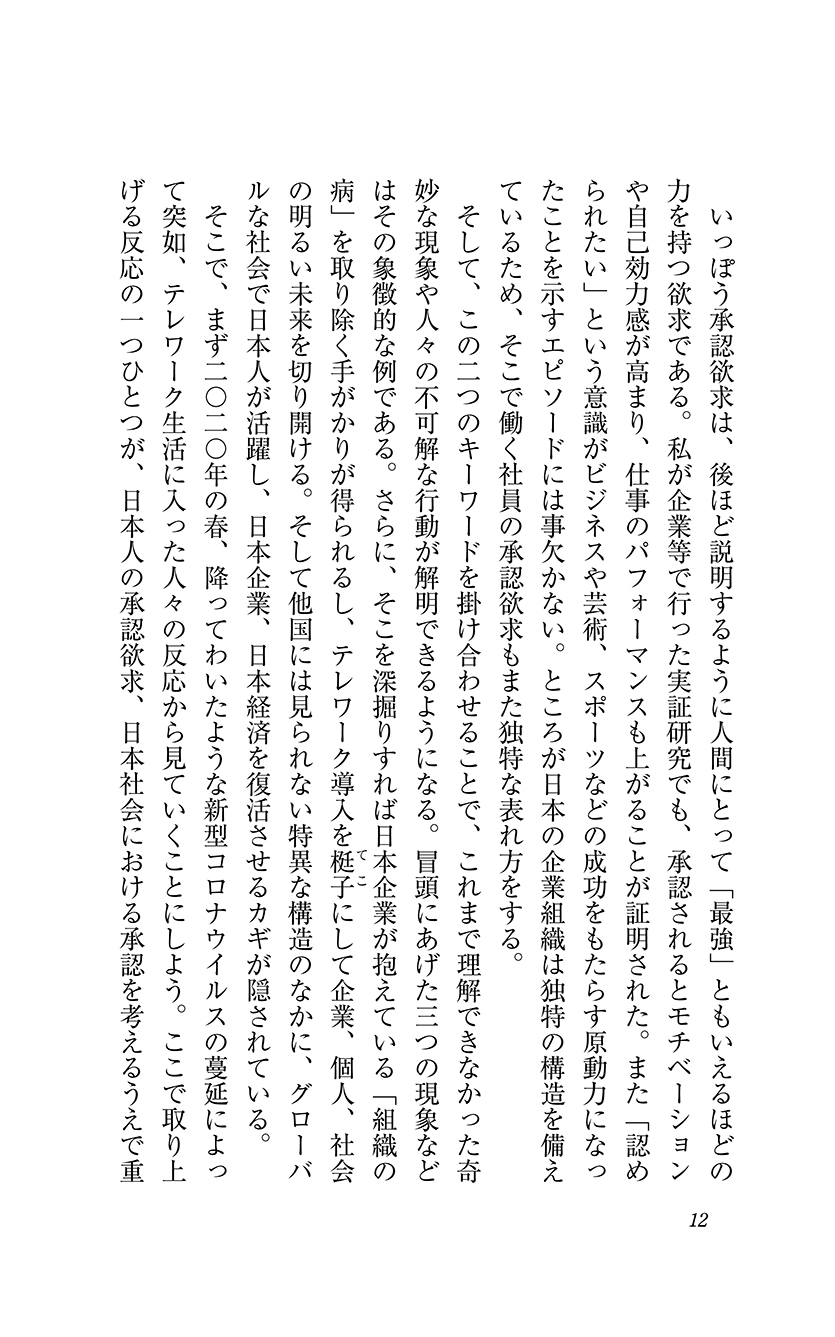 いっぽう承認欲求は、後ほど説明するように人間にとって「最強」ともいえるほどの
力を持つ欲求である。私が企業等で行った実証研究でも、承認されるとモチベーション
や自己効力感が高まり、仕事のパフォーマンスも上がることが証明された。また「認め
られたい」という意識がビジネスや芸術、スポーツなどの成功をもたらす原動力になっ
たことを示すエピソードには事欠かない。ところが日本の企業組織は独特の構造を備え
ているため、そこで働く社員の承認欲求もまた独特な表れ方をする。
そして、この二つのキーワードを掛け合わせることで、これまで理解できなかった奇
妙な現象や人々の不可解な行動が解明できるようになる。冒頭にあげた三つの現象など
はその象徴的な例である。さらに、そこを深掘りすれば日本企業が抱えている「組織の
病」を取り除く手がかりが得られるし、テレワーク導入を梃子にして企業、個人、社会
てこ
の明るい未来を切り開ける。そして他国には見られない特異な構造のなかに、グローバ
ルな社会で日本人が活躍し、日本企業、日本経済を復活させるカギが隠されている。
そこで、まず二〇二〇年の春、降ってわいたような新型コロナウイルスの蔓延によっ
て突如、テレワーク生活に入った人々の反応から見ていくことにしよう。ここで取り上
げる反応の一つひとつが、日本人の承認欲求、日本社会における承認を考えるうえで重
12